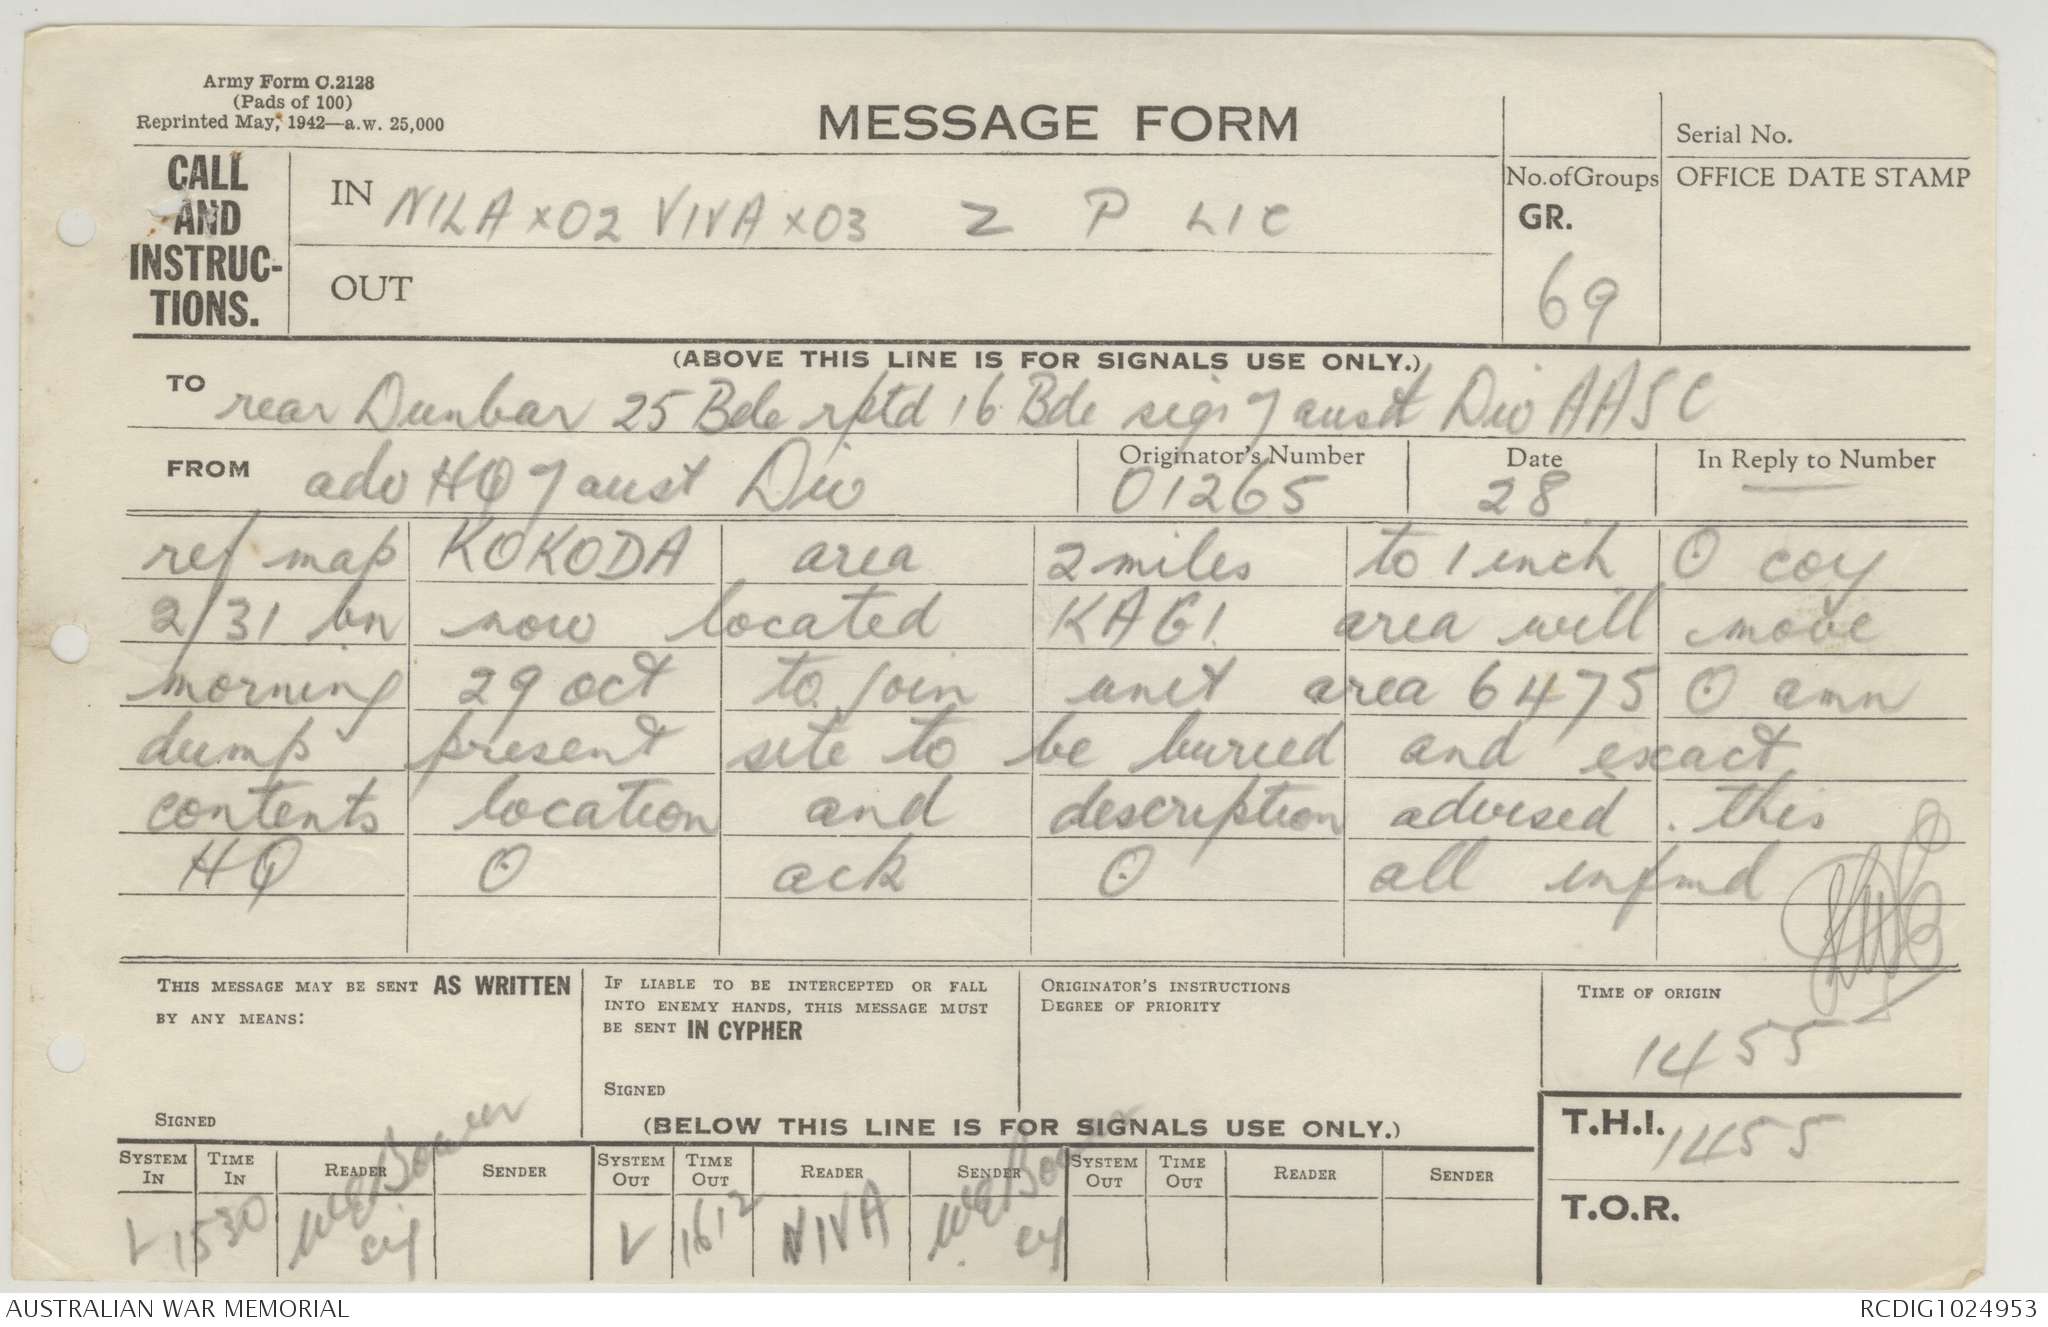 Army Form C.2128
(Pads of 100)
Reprinted May, 1942—a.w. 25,000
MESSAGE FORM
Serial No.
CALL AND INSTRUC-TIONS.
IN NILA X02 VIVA X03 Z P LIC
OUT
No. of Groups
GR.
69
OFFICE DATE STAMP
(ABOVE THIS LINE IS FOR SIGNALS USE ONLY.)
TO rear Dunbar 25 Bde rptd 16 Bde sigs 7 aust Div AASC
FROM adv HQ 7 aust Div
Originator's Number
01265
Date
28
In Reply to Number
—
ref map KOKODA area 2 miles to 1 inch O coy
2/31 bn now located KAGI area will move
morning 29 oct to join unit area 6475 O amn
dump present site to be buried and exact
contents location and description advised . this
HQ O ack O all infmd
THIS MESSAGE MAY BE SENT AS WRITTEN
BY ANY MEANS:
SIGNED
IF LIABLE TO BE INTERCEPTED OR FALL
INTO ENEMY HANDS, THIS MESSAGE MUST
BE SENT IN CYPHER
SIGNED
ORIGINATOR'S INSTRUCTIONS
DEGREE OF PRIORITY
TIME OF ORIGIN
1455
(BELOW THIS LINE IS FOR SIGNALS USE ONLY.)
T.H.I. 1455
T.O.R.
SYSTEM IN TIME IN READER SENDER SYSTEM OUT TIME OUT READER SENDER SYSTEM OUT TIME OUT READER SENDER
V 1530 V 1612 NIVA
AUSTRALIAN WAR MEMORIAL
RCDIG1024953